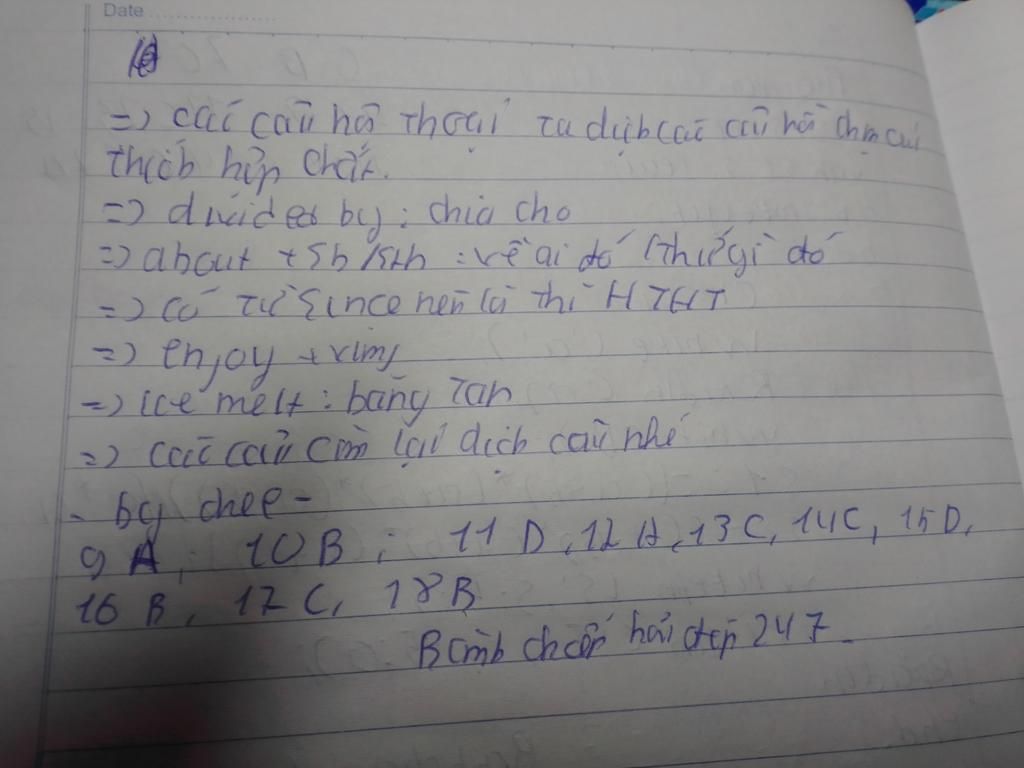 Date
=> các câu hỏi thoại ta dịch các câu hỏi chọn câu
thích hợp nhất.
=> divided by : chia cho
=> about + sb/sth : về ai đó /thứ gì đó
=> có từ since nên là thì HTHT
=> enjoy + ving
=> ice melt : băng tan
=> các câu còn lại dịch câu nhé
9 A ; 10 B ; 11 D , 12 A , 13 C, 14 C, 15 D,
16 B , 17 C, 18 B
hỏi đáp 247